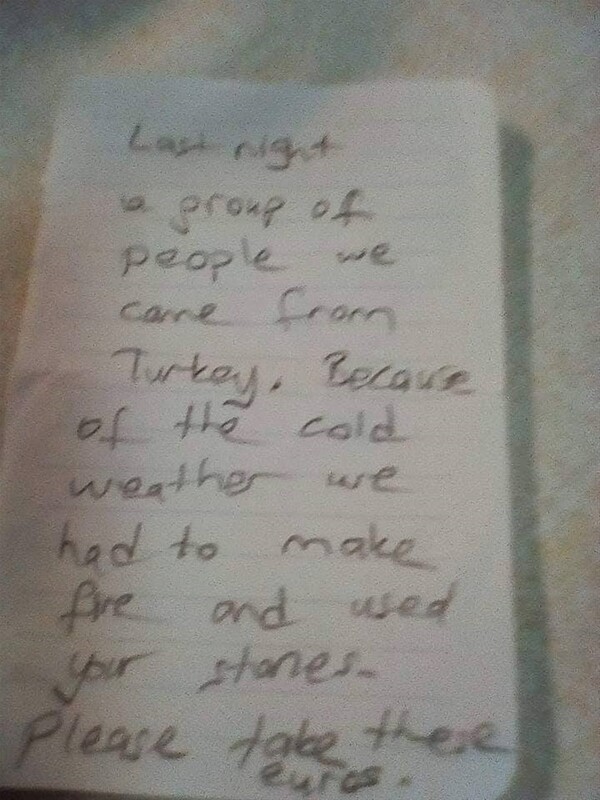 Last night
a group of
people we
came from
Turkey. Because
of the cold
weather we
had to make
fire and used
your stones.
Please take these
euros.